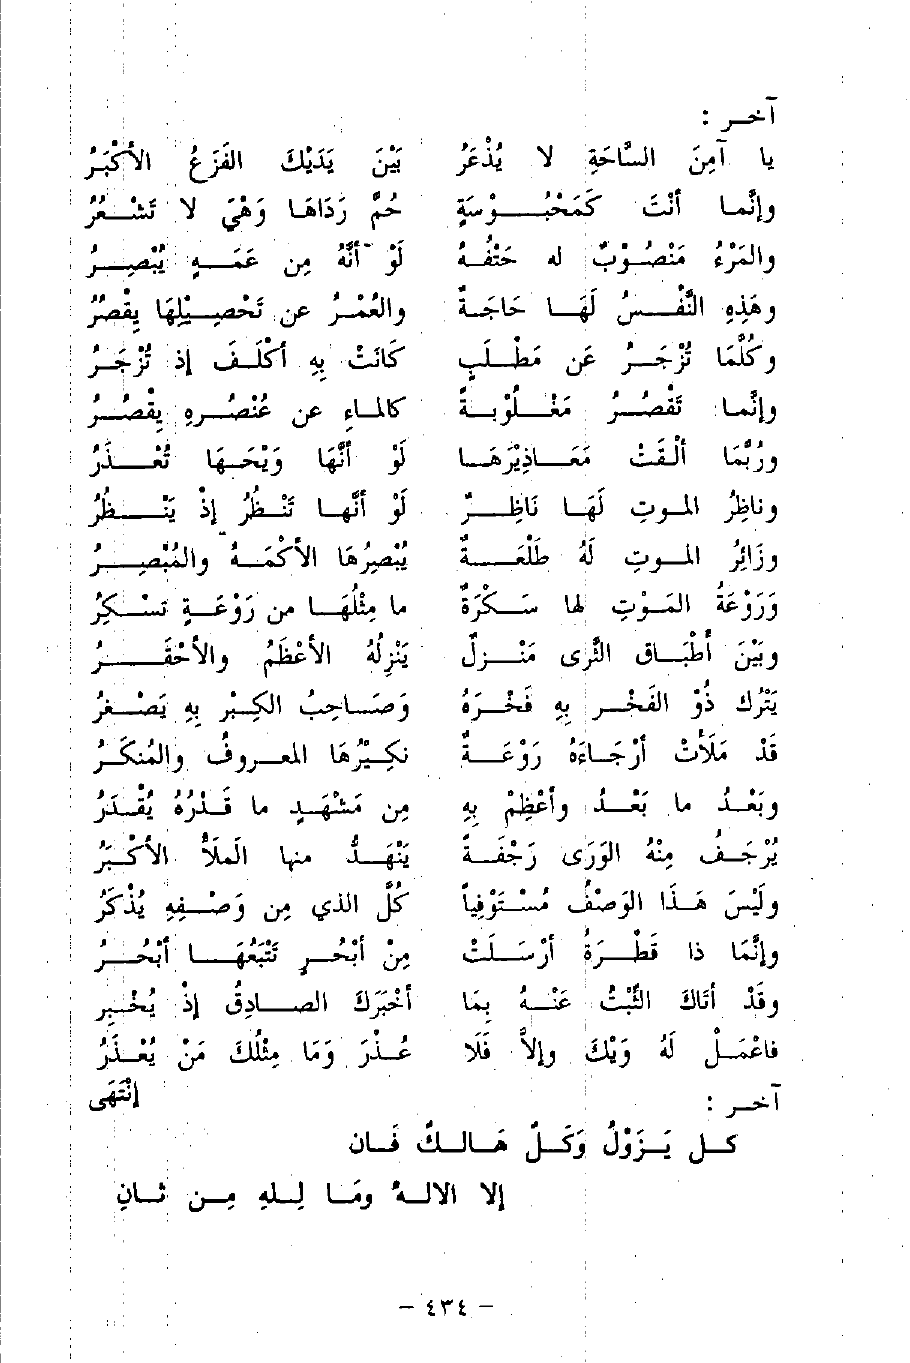 آخر :
يا آمِنَ السَّاحَةِ لا يُذْعَرُ بَيْنَ يَدَيْكَ الفَزَعُ الأَكْبَرُ
وإنَّما أَنْتَ كَمَحْبُوْسَةٍ حُمَّ رَدَاهَا وَهْيَ لا تَشْعُرُ
والمَرْءُ مَنْصُوْبٌ له حَتْفُهُ لَوْ أنَّهُ مِن عَمَهٍ يُبْصِرُ
وهَذِهِ النَّفْسُ لَهَا حَاجَةٌ والعُمْرُ عن تَحْصِيْلِهَا يِقْصُرُ
وكُلَّمَا تُزْجَرُ عَن مَطْلَبٍ كَانَتْ بِهِ أَكْلَفَ إذ تُزْجَرُ
وإنَّما تَقْصُرُ مَغْلُوْبَةً كالماءِ عن عُنْصُرِهِ يِقْصُرُ
ورُبَّمَا أَلْقَتْ مَعَاذِيْرَهَا لَوْ أَنَّهَا وَيْحَهَا تُعْذَرُ
وناظِرُ الموتِ لَهَا نَاظِرٌ لَوْ أنَّها تَنْظُرُ إذْ يَنْظُرُ
وزَائِرُ الموتِ لَهُ طَلْعَةٌ يُبْصِرُهَا الأكْمَهُ والمُبْصِرُ
وَرَوْعَةُ المَوْتِ لها سَكْرَةٌ ما مِثْلُهَا من رَوْعَةٍ تَسْكِرُ
وبَيْنَ أَطْبَاقِ الثَّرى مَنْزِلٌ يَنْزِلُهُ الأعْظَمُ والأحْقَرُ
يَتْرُك ذُوْ الفَخْرِ بِهِ فَخْرَهُ وَصَاحِبُ الكِبْرِ بِهِ يَصْغُرُ
قَدْ مَلَأَتْ أَرْجَاءَهُ رَوْعَةٌ نكِيْرُهَا المعروفُ والمُنكَرُ
وبَعْدُ ما بَعْدُ وأعْظِمْ بِهِ مِن مَشْهَدٍ ما قَدْرُهُ يُقْدَرُ
يُرْجَفُ مِنْهُ الوَرَى رَجْفَةً يَنْهَدُّ منها المَلَأُ الأَكْبَرُ
ولَيْسَ هَذَا الوَصْفُ مُسْتَوْفِياً كُلَّ الذي مِن وَصْفِهِ يُذْكَرُ
وإنَّمَا ذا قَطْرَةٌ أَرْسَلَتْ مِنْ أَبْحُرٍ تَتْبَعُهَا أَبْحُرُ
وقَدْ أتَاكَ الثَّبْتُ عَنْهُ بِمَا أَخْبَرَكَ الصادِقُ إذْ يُخْبِر
فاعْمَلْ لَهُ وَيْكَ وإلاَّ فَلَا عُذْرَ وَمَا مِثْلُكَ مَنْ يُعْذَرُ
إنْتَهَى
آخر :
كل يَزُوْلُ وَكَلٌ هَالكٌ فَان
إلا الالهُ ومَا لِلهِ مِن ثانِ
- ٤٣٤ -